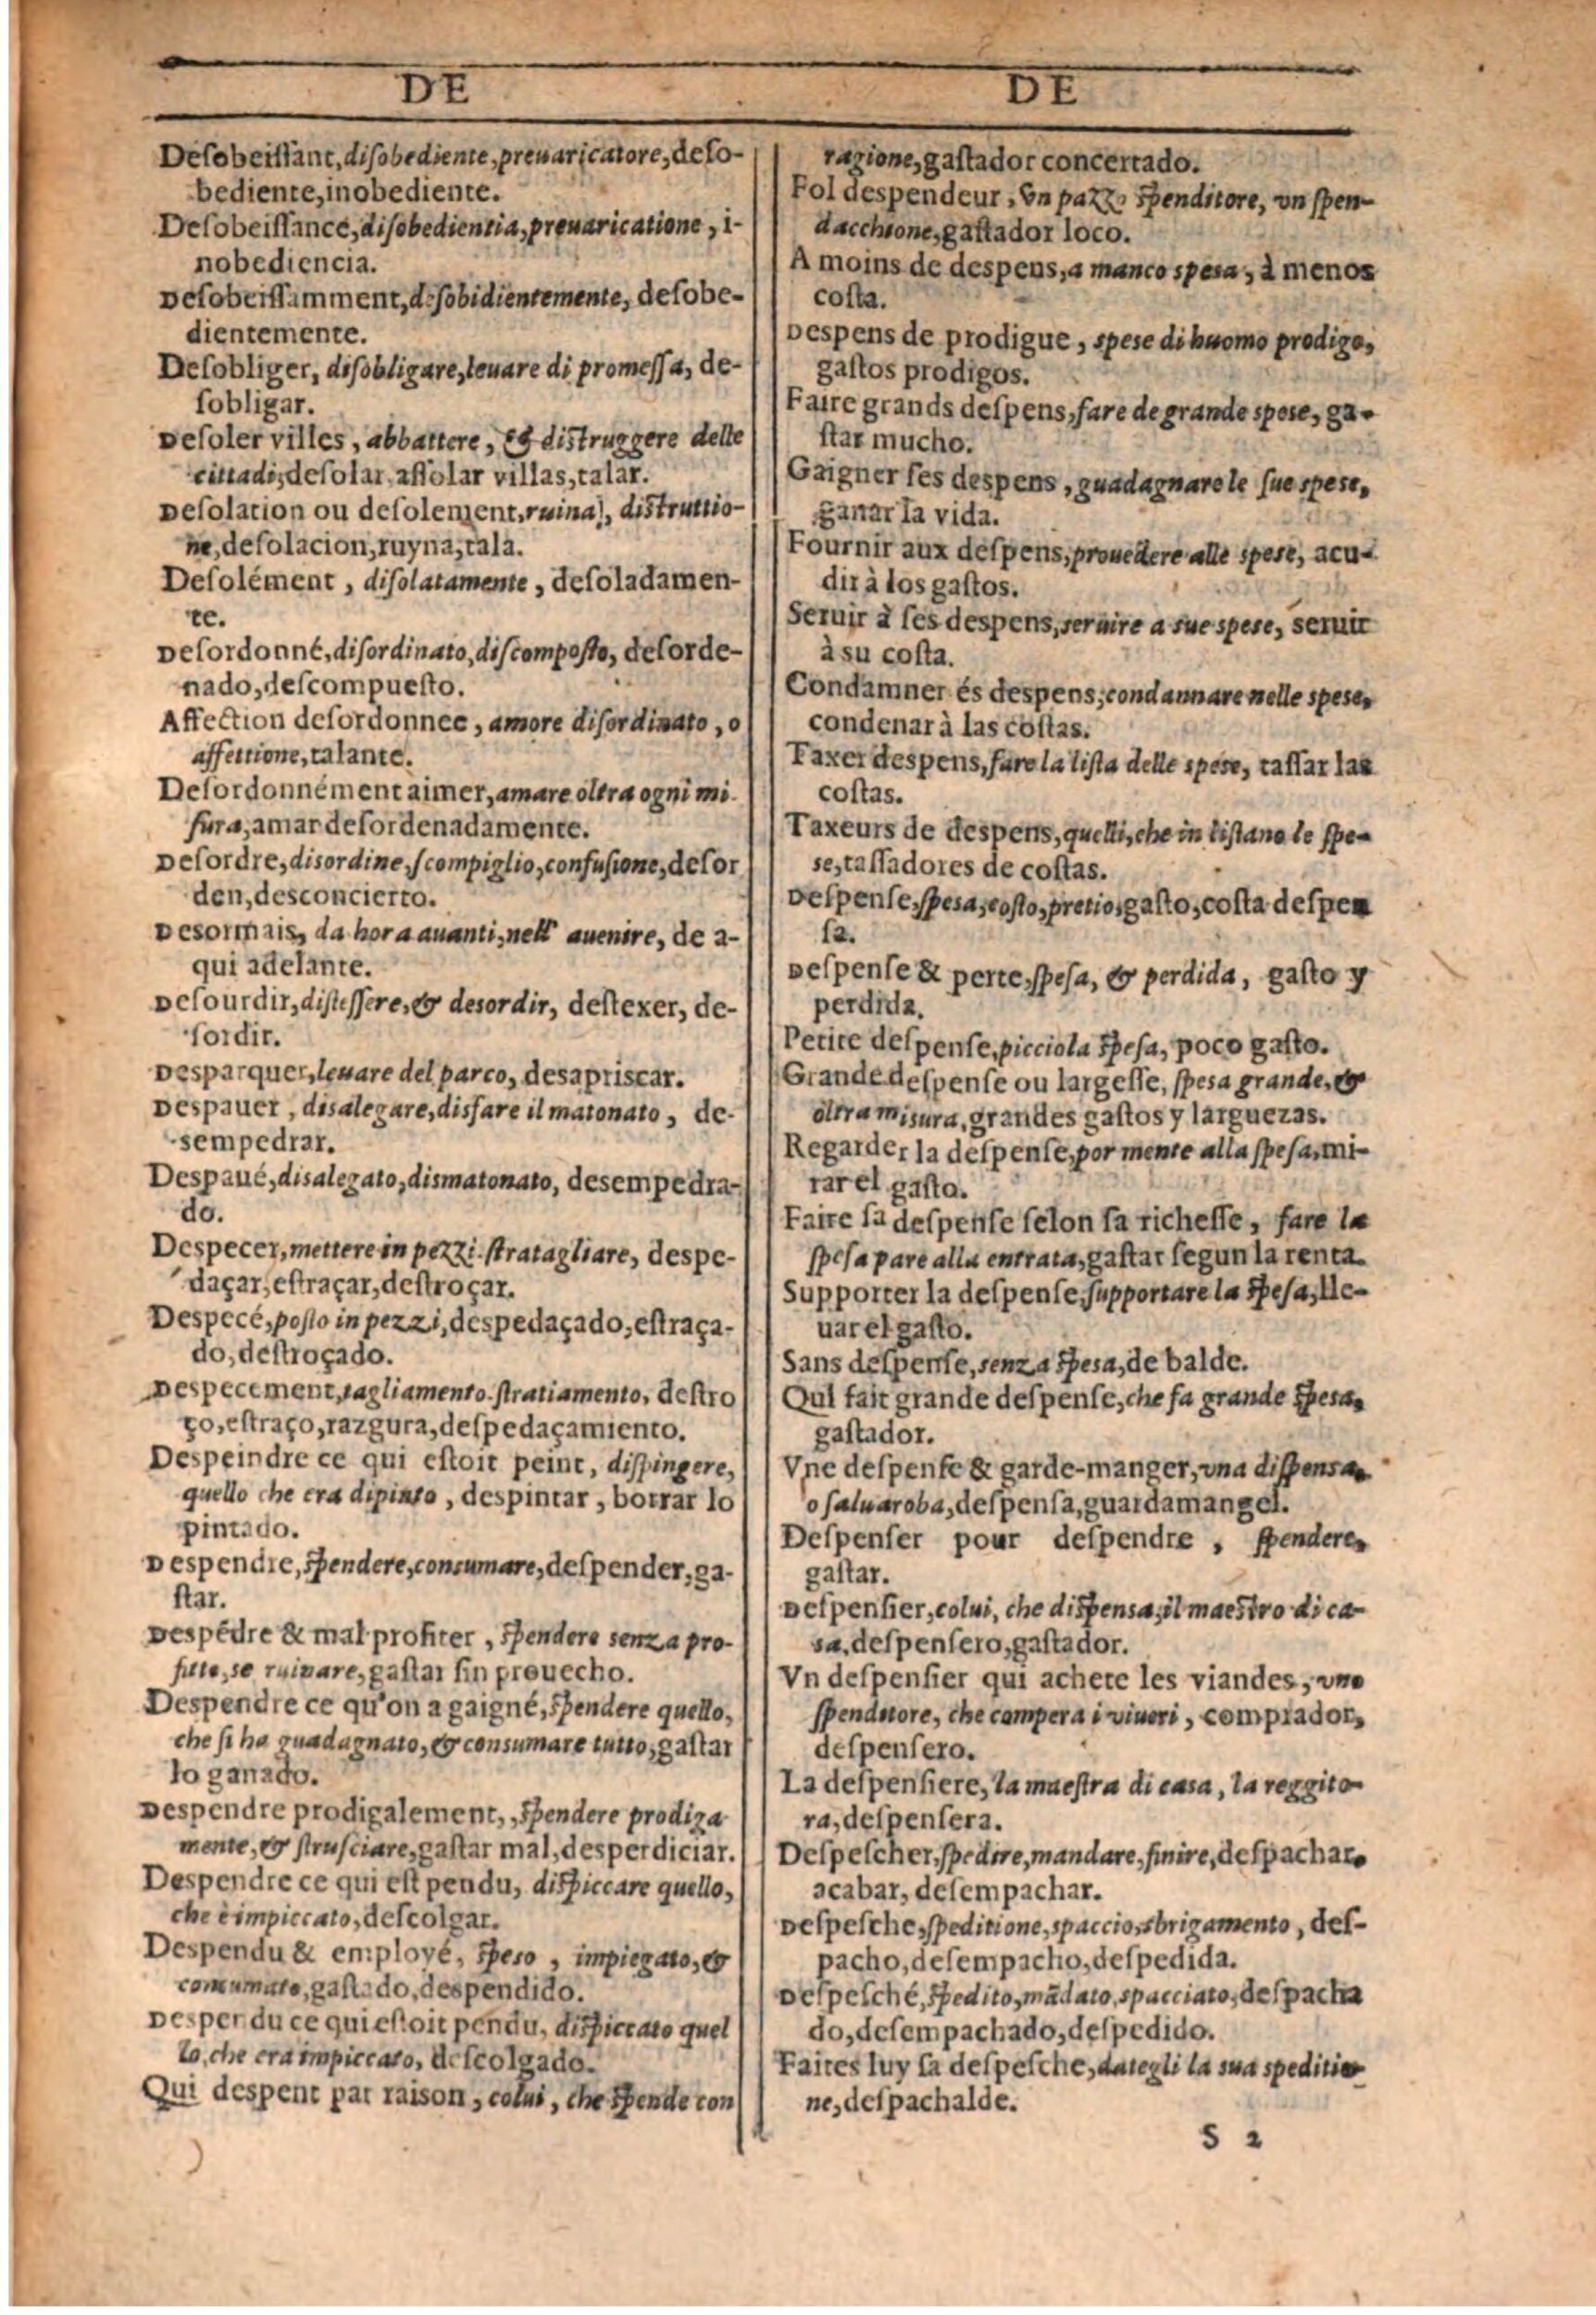 DE
Desobeissant, disobediente, preuaricatore, deso-
bediente, inobediente.
Desobeissance, disobedientia, preuaricatione, i-
nobediencia.
Desobeissamment, disobidientemente, desobe-
dientemente.
Desobliger, disobligare, leuare di promessa, de-
sobligar.
Desoler villes, abbattere, & distruggere delle
cittadi, desolar, assolar villas, talar.
Desolation ou desolement, ruina), distruttio-
ne, desolacion, ruyna, tala.
Desolément, disolatamente, desoladamen-
te.
Desordonné, disordinato, discomposto, desorde-
nado, descompuesto.
Affection desordonnee, amore disordinato, o
affettione, talante.
Desordonnément aimer, amare oltra ogni mi
sura, amar desordenadamente.
Desordre, disordine, scompiglio, confusione, desor
den, desconcierto.
Desormais, da hora auanti, nell' auenire, de a-
qui adelante.
Desourdir, distessere, & desordir, destexer, de-
sordir.
Desparquer, leuare del parco, desapriscar.
Despauer, disalegare, disfare il matonato, de-
sempedrar.
Despaué, disalegato, dismatonato, desempedra-
do.
Despecer, mettere in pezzi. stratagliare, despe-
daçar, estraçar, destroçar.
Despecé, posto in pezzi, despedaçado, estraça-
do, destroçado.
Despecement, tagliamento. stratiamento, destro
ço, estraço, razgura, despedaçamiento.
Despeindre ce qui estoit peint, dispingere,
quello che era dipinto, despintar, borrar lo
pintado.
Despendre, spendere, consumare, despender, ga-
star.
Despēdre & mal profiter, spendere senza pro-
fitto, se ruinare, gastar sin prouecho.
Despendre ce qu'on a gaigné, spendere quello,
che si ha guadagnato, & consumare tutto, gastar
lo ganado.
Despendre prodigalement,, spendere prodiga
mente, & strusciare, gastar mal, desperdiciar.
Despendre ce qui est pendu, dispiccare quello,
che è impiccato, descolgar.
Despendu & employé, speso, impiegato, &
consumato, gastado, despendido.
Despendu ce qui estoit pendu, dispiccato quel
lo, che era impiccato, descolgado.
Qui despent par raison, colui, che spende con
DE
ragione, gastador concertado.
Fol despendeur, vn pazzo spenditore, vn spen-
dacchione, gastador loco.
A moins de despens, a manco spesa, à menos
costa.
Despens de prodigue, spese di huomo prodigo,
gastos prodigos.
Faire grands despens, fare de grande spese, ga-
star mucho.
Gaigner ses despens, guadagnare le sue spese,
ganar la vida.
Fournir aux despens, prouedere alle spese, acu-
dir à los gastos.
Seruir à ses despens, seruire a sue spese, seruir
à su costa.
Condamner és despens, condannare nelle spese,
condenar à las costas.
Taxer despens, fare la lista delle spese, tassar las
costas.
Taxeurs de despens, quelli, che in listano le spe-
se, tassadores de costas.
Despense, spesa, costo, pretio, gasto, costa despen
sa.
Despense & perte, spesa, & perdida, gasto y
perdida.
Petite despense, picciola spesa, poco gasto.
Grande despense ou largesse, spesa grande, &
oltra misura, grandes gastos y larguezas.
Regarder la despense, por mente alla spesa, mi-
rar el gasto.
Faire sa despense selon sa richesse, fare la
spesa pare alla entrata, gastar segun la renta.
Supporter la despense, supportare la spesa, lle-
uar el gasto.
Sans despense, senza spesa, de balde.
Qui fait grande despense, che fa grande spesa,
gastador.
Vne despense & garde-manger, vna dispensa,
o saluaroba, despensa, guardamangel.
Despenser pour despendre, spendere,
gastar.
Despensier, colui, che dispensa, il maestro di ca-
sa, despensero, gastador.
Vn despensier qui achete les viandes, vno
spenditore, che campera i viueri, comprador,
despensero.
La despensiere, la maestra di casa, la reggito-
ra, despensera.
Despescher, spedire, mandare, finire, despachar,
acabar, desempachar.
Despesche, speditione, spaccio, sbrigamento, des-
pacho, desempacho, despedida.
Despesché, spedito, mādato, spacciato, despacha
do, desempachado, despedido.
Faites luy sa despesche, dategli la sua speditio-
ne, despachalde.
S 2